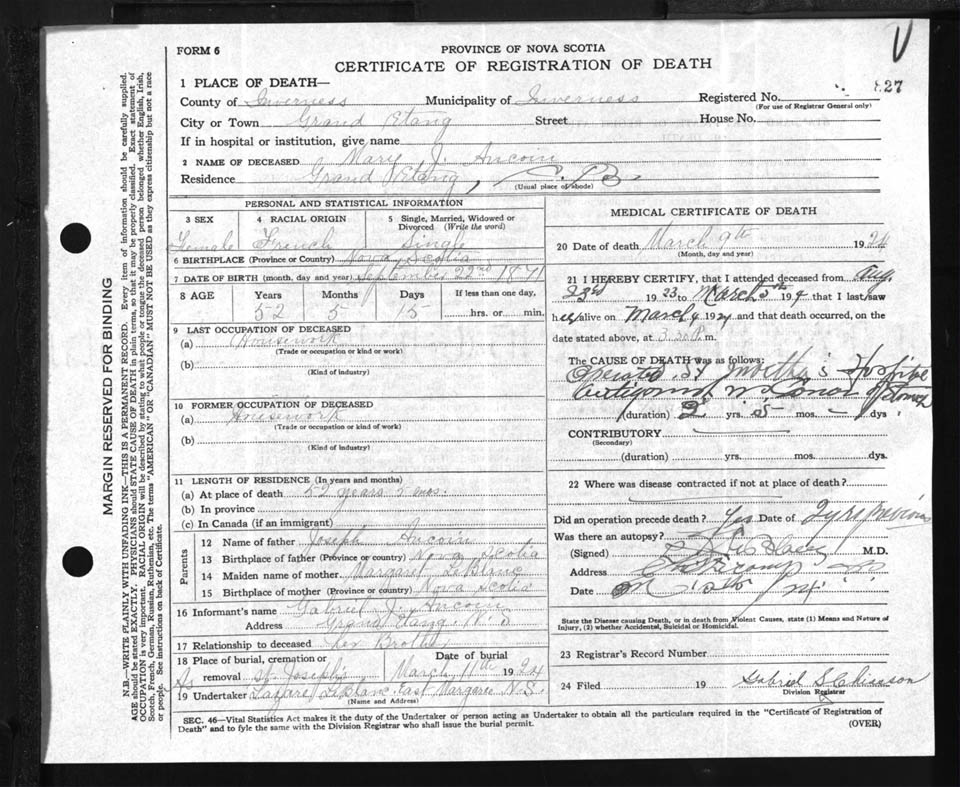 V
FORM 6
PROVINCE OF NOVA SCOTIA
CERTIFICATE OF REGISTRATION OF DEATH
827
1 PLACE OF DEATH—
County of Inverness Municipality of Inverness Registered No.
(For use of Registrar General only)
City or Town Grand Etang Street House No.
If in hospital or institution, give name
2 NAME OF DECEASED Mary J. Aucoin
Residence Grand Etang, C.B.
(Usual place of abode)
MARGIN RESERVED FOR BINDING
N.B.—WRITE PLAINLY WITH UNFADING INK—THIS IS A PERMANENT RECORD. Every item of information should be carefully supplied.
AGE should be stated EXACTLY. PHYSICIANS should STATE CAUSE OF DEATH in plain terms, so that it may be properly classified. Exact statement of
OCCUPATION is very important. RACIAL ORIGIN will be described by stating to what people or tongue the deceased person belonged whether English, Irish,
Scotch, French, German, Russian, Ruthenian, etc. The terms "AMERICAN" or "CANADIAN" MUST NOT BE USED as they express citizenship but not a race
or people. See instructions on back of Certificate.
PERSONAL AND STATISTICAL INFORMATION
3 SEX
Female
4 RACIAL ORIGIN
French
5 Single, Married, Widowed or
Divorced (Write the word)
Single
6 BIRTHPLACE (Province or Country) Nova Scotia
7 DATE OF BIRTH (month, day and year) September 22nd 1871
8 AGE Years Months Days If less than one day,
52 5 15 hrs. or min.
9 LAST OCCUPATION OF DECEASED
(a) Housework
(Trade or occupation or kind or work)
(b)
(Kind of industry)
10 FORMER OCCUPATION OF DECEASED
(a) Housework
(Trade or occupation or kind of work)
(b)
(Kind of industry)
11 LENGTH OF RESIDENCE (In years and months)
(a) At place of death 52 years 5 mos.
(b) In province
(c) In Canada (if an immigrant)
Parents
12 Name of father Joseph Aucoin
13 Birthplace of father (Province or country) Nova Scotia
14 Maiden name of mother Margaret LeBlanc
15 Birthplace of mother (Province or country) Nova Scotia
16 Informant's name Gabriel J. Aucoin
Address Grand Etang N.S
17 Relationship to deceased Her Brother
18 Place of burial, cremation or Date of burial
removal St Joseph's March 11th 1924
19 Undertaker Lazare LeBlanc East Margaree N.S.
(Name and Address)
MEDICAL CERTIFICATE OF DEATH
20 Date of death March 9th 1924
(Month, day and year)
21 I HEREBY CERTIFY, that I attended deceased from Aug.
23rd 1923 to March 5th 1924 that I last saw
her alive on March 4 1924 and that death occurred, on
date stated above, at 3.30 P.m.
The CAUSE OF DEATH was as follows:
Operated St Hospital
(duration) 2 yrs. 5 mos. — dys
CONTRIBUTORY
(Secondary)
(duration) yrs. mos. dys.
22 Where was disease contracted if not at place of death?
Did an operation precede death? Yes Date of 2 yrs previous
Was there an autopsy?
(Signed) M.D.
Address
Date
State the Disease causing Death, or in death from Violent Causes, state (1) Means and Nature of
Injury, (2) whether Accidental, Suicidal or Homicidal.
23 Registrar's Record Number
24 Filed 19 Gabriel S Chiasson
Division Registrar
SEC. 46—Vital Statistics Act makes it the duty of the Undertaker or person acting as Undertaker to obtain all the particulars required in the "Certificate of Registration of
Death" and to fyle the same with the Division Registrar who shall issue the burial permit.
(OVER)